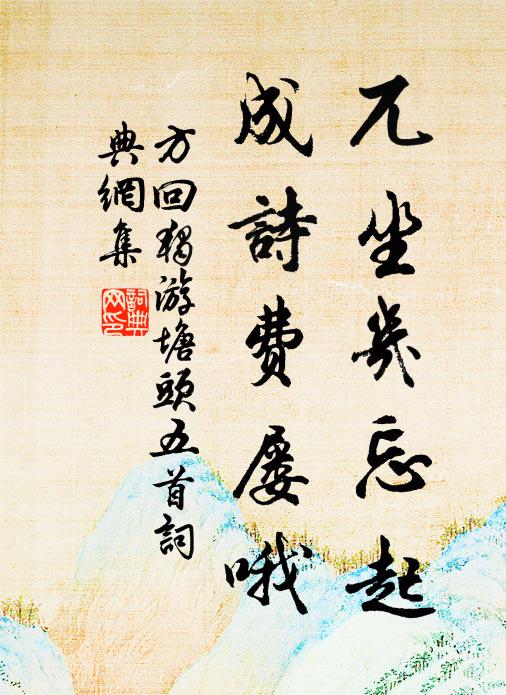 兀坐几忘起
成詩費屡哦
方回獨游塘頭五首詞
典網集
詞典網印